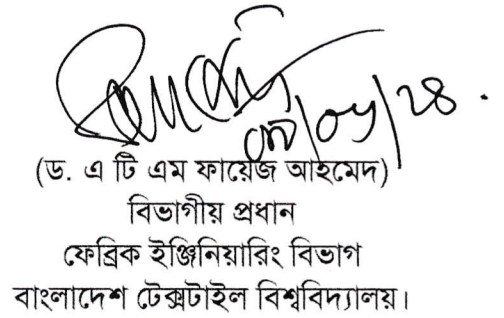 (ড. এ টি এম ফায়েজ আহমেদ)
বিভাগীয় প্রধান
ফেব্রিক ইঞ্জিনিয়ারিং বিভাগ
বাংলাদেশ টেক্সটাইল বিশ্ববিদ্যালয়।